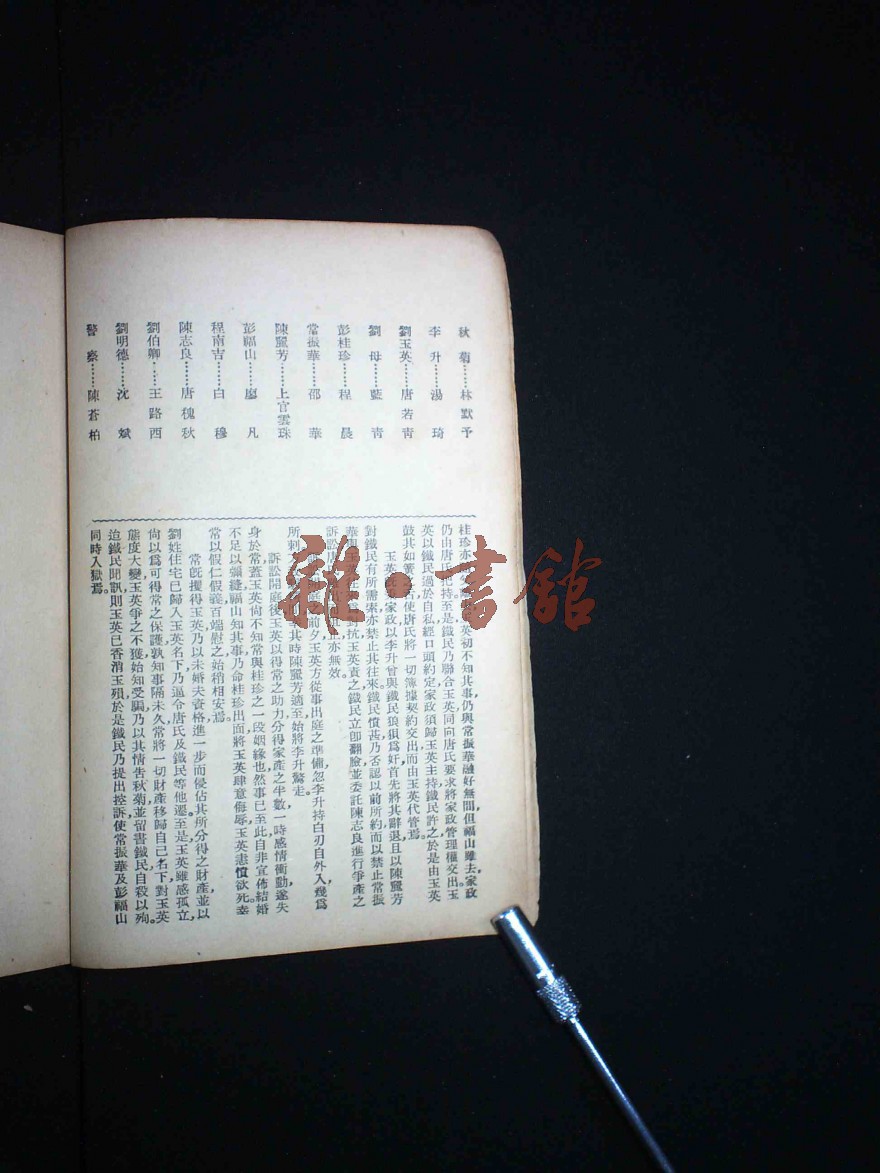 秋菊……林默予
李升……湯琦
劉玉英……唐若青
劉母……藍青
彭桂珍……程晨
常振華……邵華
陳麗芳……上官雲珠
彭福山……廖凡
程南吉……白穆
陳志良……唐槐秋
劉伯卿……王路西
劉明德……沈斌
警察……陳蒼柏
桂珍亦英初不知其事仍與常振華融好無間但福山雖去家政
仍由唐持至是鐵民乃聯合玉英同向唐氏要求將家政管理權交出玉
英以鐵民過於自私經口頭約定家政須歸玉英主持鐵民許之於是由玉英
鼓其如簧之舌使唐氏將一切簿據契約交出而由玉英代管焉。
玉英家政以李升曾與鐵民狼狽為奸首先將其辭退且以陳麗芳
對鐵民有所需索亦禁止其往來鐵民憤甚乃否認以前所約而以禁止常振
華對抗玉英責之鐵民立卽翻臉並委託陳志良進行爭產之
訴訟唐亦無效。
前夕玉英方從事出庭之準備忽李升持白刃自外入幾為
所刺其時陳麗芳適至始將李升驚走。
訴訟開庭後玉英以得常之助力分得家產之半數一時感情衝動遂失
身於常蓋玉英尙不知常與桂珍之一段姻緣也然事已至此自非宣佈結婚
不足以彌縫福山知其事乃命桂珍出面將玉英肆意侮辱玉英恚憤欲死幸
常以假仁假義百端慰之始稍相安焉。
常旣攫得玉英乃以未婚夫資格進一步而侵佔其所分得之財產並以
劉姓住宅已歸入玉英名下乃逼令唐氏及鐵民等他遷至是玉英雖感孤立
尙以為可得常之保護孰知事隔未久常將一切財產移歸自己名下對玉英
態度大變玉英爭之不獲始知受騙乃以其情吿秋菊並留書鐵民自殺以殉。
迨鐵民聞訊則玉英已香消玉殞於是鐵民乃提出控訴使常振華及彭福山
同時入獄焉。
雜·書館